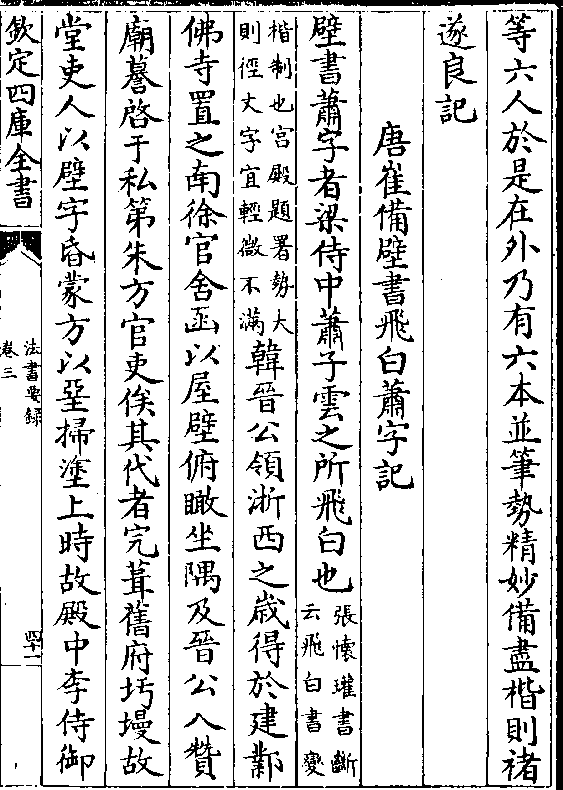 等六人於是在外乃有六本並筆勢精妙備盡楷則褚
遂良記
唐崔備壁書飛白蕭字記
壁書蕭字者梁侍中蕭子雲之所飛白也張懷瓘書斷
云飛白書變
楷制也宫殿題署勢大
則徑丈字宜輕微不滿韓晉公領浙西之歲得於建鄴
佛寺置之南徐官舍函以屋壁俯瞰坐隅及晉公入贊
廟謩啓于私第朱方官吏俟其代者完葺舊府圬墁故
堂吏人以壁字昏蒙方以堊掃塗上時故殿中李侍御
欽定四庫全書
法書要録
卷三
四十一